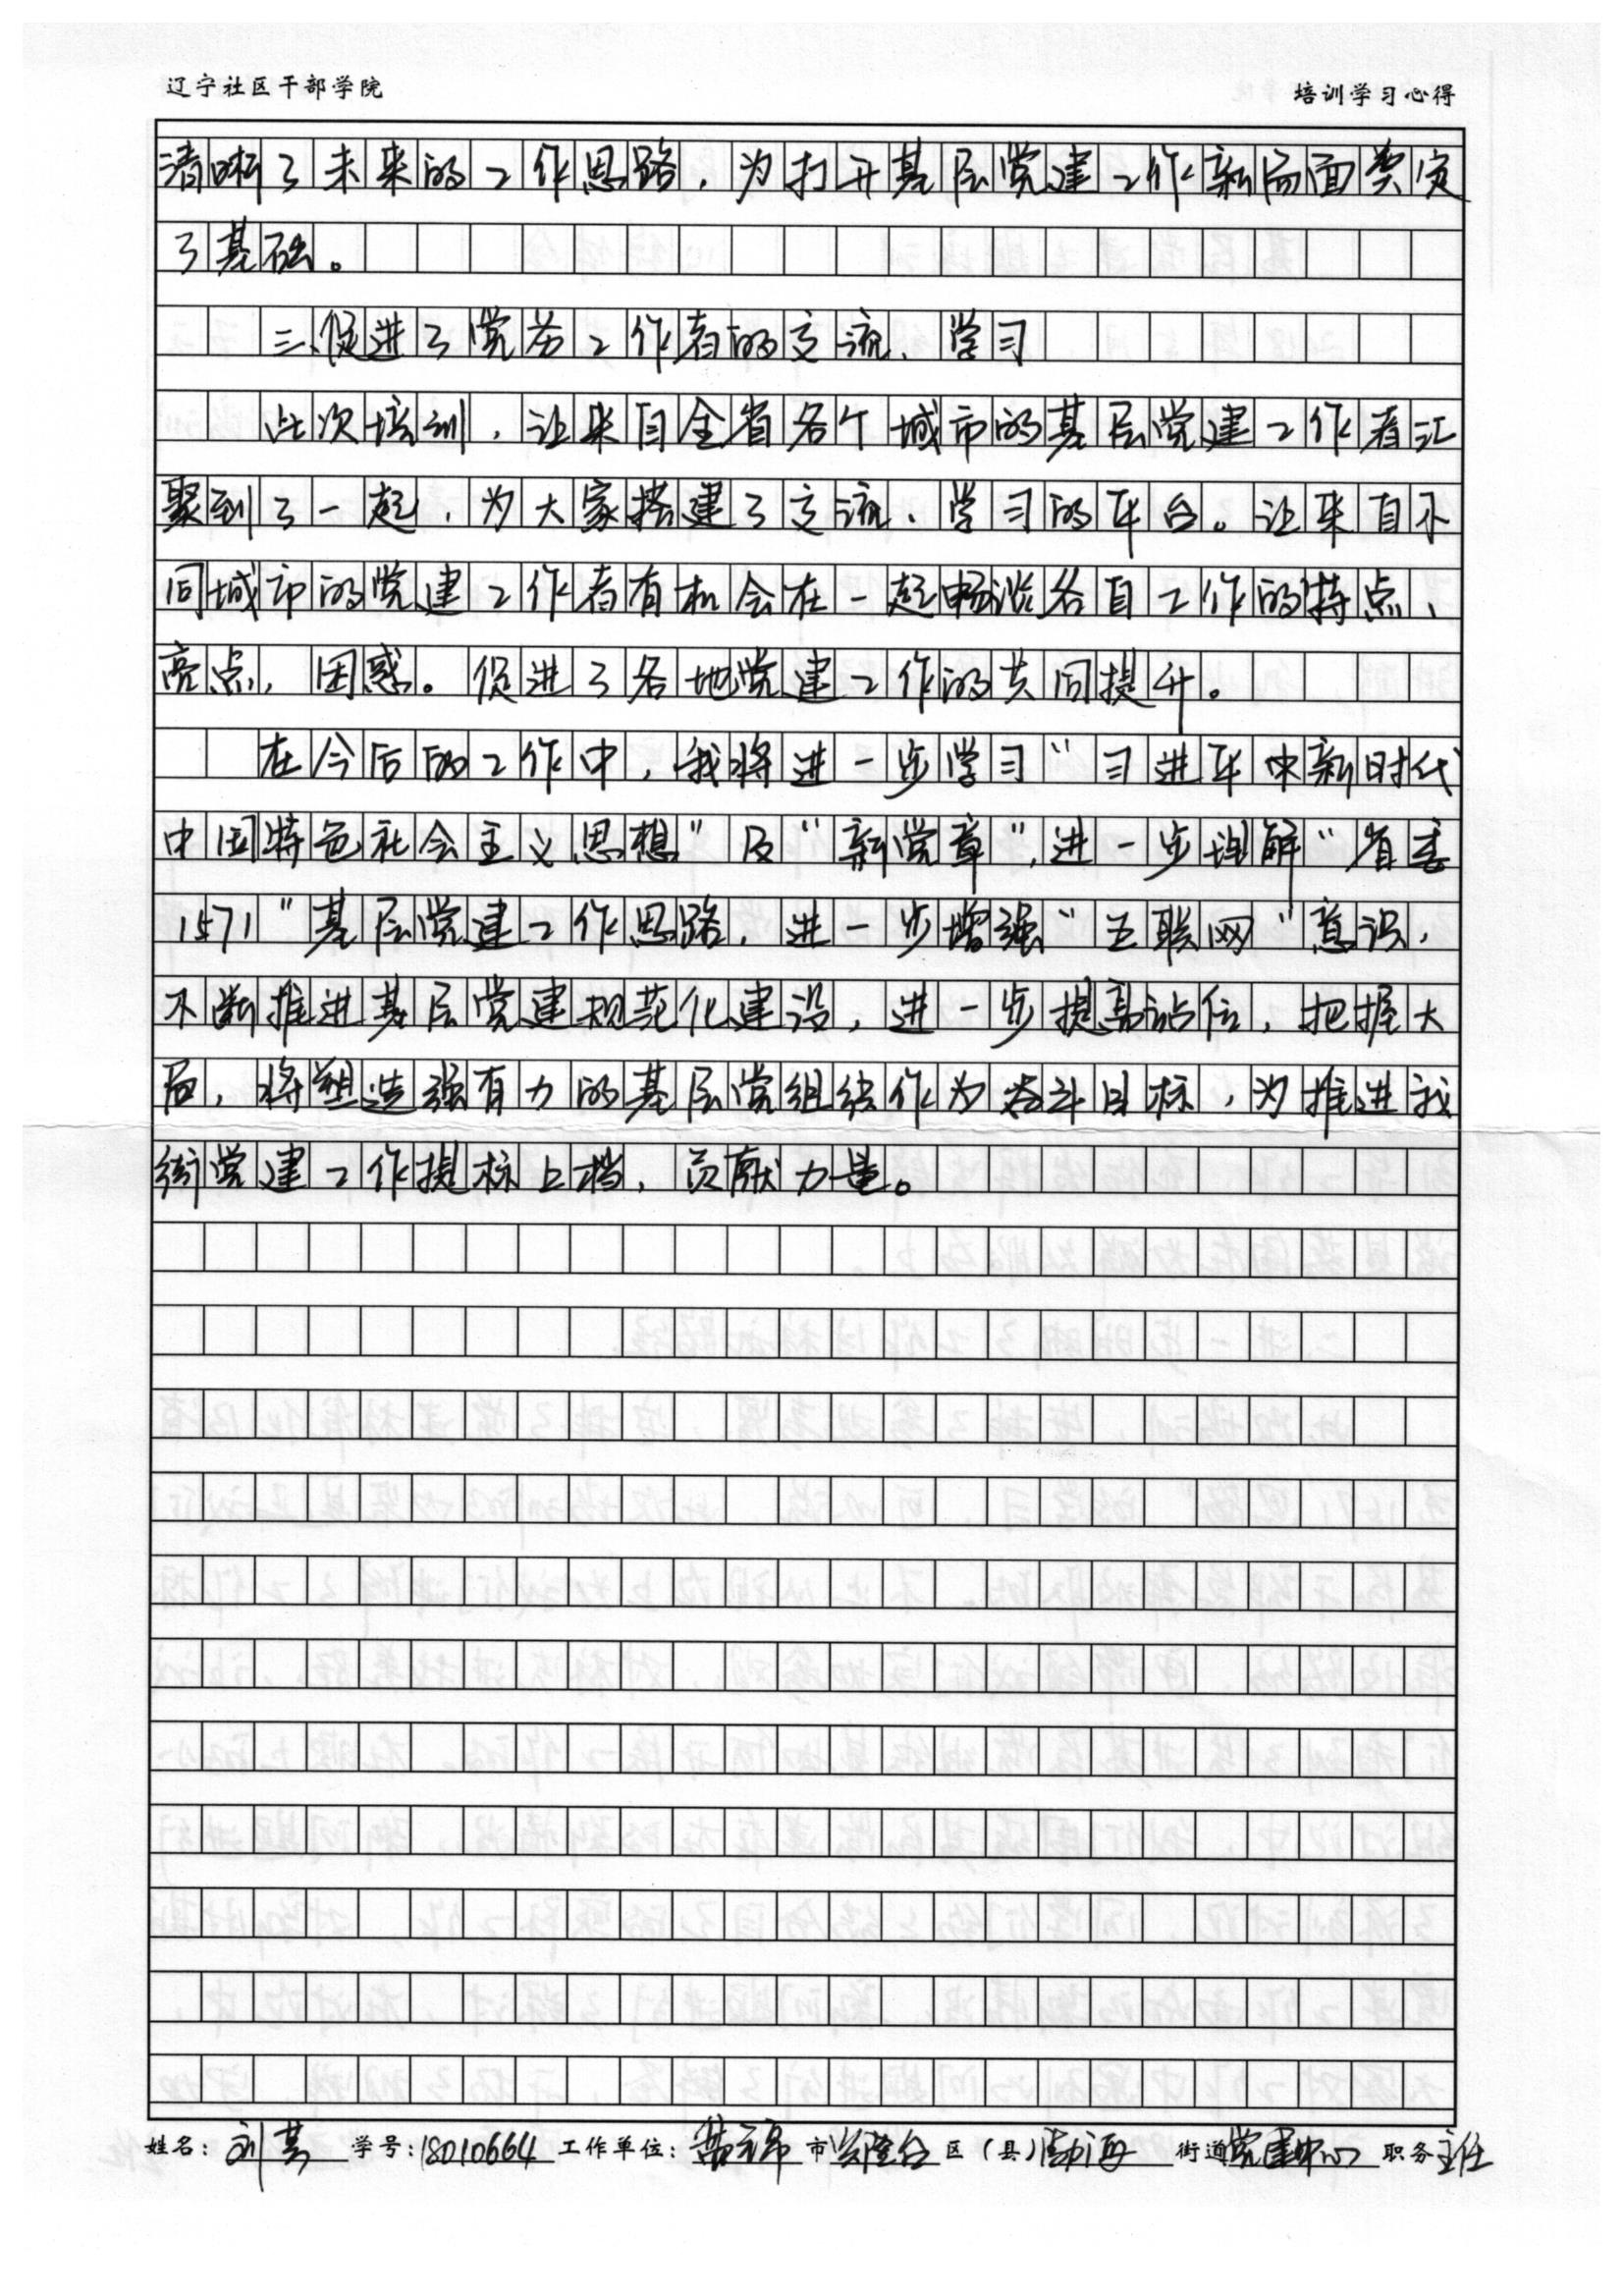 辽宁社区干部学院
培训学习心得
清晰了未来的工作思路，为打开基层党建工作新局面奠定
了基础。
三、促进了党务工作者的交流、学习
此次培训，让来自全省各个城市的基层党建工作者汇
聚到了一起，为大家搭建了交流、学习的平台。让来自不
同城市的党建工作者有机会在一起畅谈各自工作的特点、
亮点、困惑。促进了各地党建工作的共同提升。
在今后的工作中，我将进一步学习“习进平中新时代
中国特色社会主义思想”及“新党章”，进一步理解“省委
1571”基层党建工作思路，进一步增强“互联网”意识，
不断推进基层党建规范化建设，进一步提高站位，把握大
局，将塑造强有力的基层党组织作为奋斗目标，为推进我
街党建工作提标上档，贡献力量。
姓名：刘 学号：18010664 工作单位：盘锦市兴隆台区（县）渤海街道党建中心 职务主任